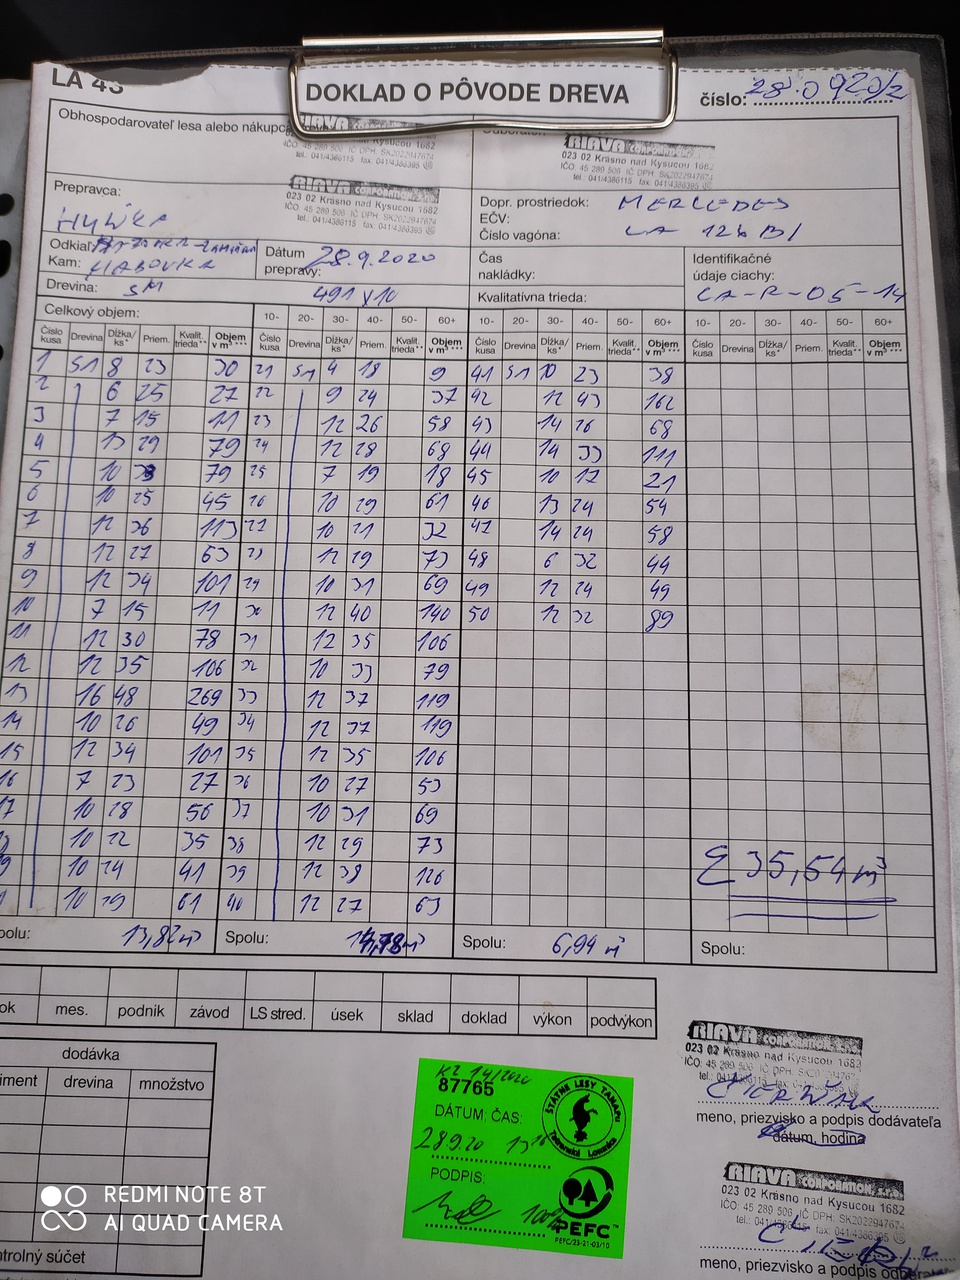 LA 43
DOKLAD O PÔVODE DREVA
číslo: 28.0920/2
Obhospodarovateľ lesa alebo nákupca
RIAVA CORPORATION s.r.o.
023 02 Krásno nad Kysucou 1682
IČO: 45 289 506 IČ DPH: SK2022947674
tel.: 041/4386115 fax: 041/4386395
Odberateľ
RIAVA CORPORATION s.r.o.
023 02 Krásno nad Kysucou 1682
IČO: 45 289 506 IČ DPH: SK2022947674
tel.: 041/4386115 fax: 041/4386395
Prepravca:
RIAVA CORPORATION s.r.o.
023 02 Krásno nad Kysucou 1682
IČO: 45 289 506 IČ DPH: SK2022947674
tel.: 041/4386115 fax: 041/4386395
Dopr. prostriedok: MERCEDES
EČV:
Číslo vagóna: CA 126 BI
Odkiaľ:
Kam: HABOVKA
Dátum
prepravy: 28.9.2020
Čas
nakládky:
Identifikačné
údaje ciachy:
CA-R-05-14
Drevina: SM 491 y 10
Kvalitatívna trieda:
Celkový objem: 10- 20- 30- 40- 50- 60+ 10- 20- 30- 40- 50- 60+ 10- 20- 30- 40- 50- 60+
Číslo kusa Drevina Dĺžka/ ks* Priem. Kvalit. trieda** Objem v m³ *** Číslo kusa Drevina Dĺžka/ ks* Priem. Kvalit. trieda** Objem v m³ *** Číslo kusa Drevina Dĺžka/ ks* Priem. Kvalit. trieda** Objem v m³ *** Číslo kusa Drevina Dĺžka/ ks* Priem. Kvalit. trieda** Objem v m³ ***
1 SM 8 23 30 21 SM 4 18 9 41 SM 10 23 38
2 6 25 27 22 9 24 37 42 12 43 162
3 7 15 11 23 12 26 58 43 14 26 68
4 13 29 79 24 12 28 68 44 14 33 111
5 10 33 79 25 7 19 18 45 10 17 21
6 10 25 45 26 10 29 61 46 13 24 54
7 12 36 113 27 10 21 32 47 14 24 58
8 12 27 63 28 12 29 73 48 6 32 44
9 12 34 101 29 10 31 69 49 12 24 49
10 7 15 11 30 12 40 140 50 12 32 89
11 12 30 78 31 12 35 106
12 12 35 106 32 10 33 79
13 16 48 269 33 12 37 119
14 10 26 49 34 12 37 119
15 12 34 101 35 12 35 106
16 7 23 27 36 10 27 53
17 10 28 56 37 10 31 69
18 10 22 35 38 12 29 73
19 10 24 41 39 12 38 126
10 29 61 40 12 27 63
Σ 35,54 m³
Spolu: 13,82 m³ Spolu: 14,78 m³ Spolu: 6,94 m³ Spolu:
rok mes. podnik závod LS stred. úsek sklad doklad výkon podvýkon
dodávka
drevina množstvo
kontrolný súčet
KZ 14/2020
87765
DÁTUM, ČAS:
28.9.20
PODPIS:
ŠTÁTNE LESY TANAPu
Tatranská Lomnica
100%
PEFC™
PEFC/23-21-03/10
RIAVA CORPORATION s.r.o.
023 02 Krásno nad Kysucou 1682
IČO: 45 289 506 IČ DPH: SK2022947674
meno, priezvisko a podpis dodávateľa
dátum, hodina
RIAVA CORPORATION s.r.o.
023 02 Krásno nad Kysucou 1682
IČO: 45 289 506 IČ DPH: SK2022947674
tel.: 041/4386115 fax: 041/4386395
meno, priezvisko a podpis odberateľa
REDMI NOTE 8T
AI QUAD CAMERA